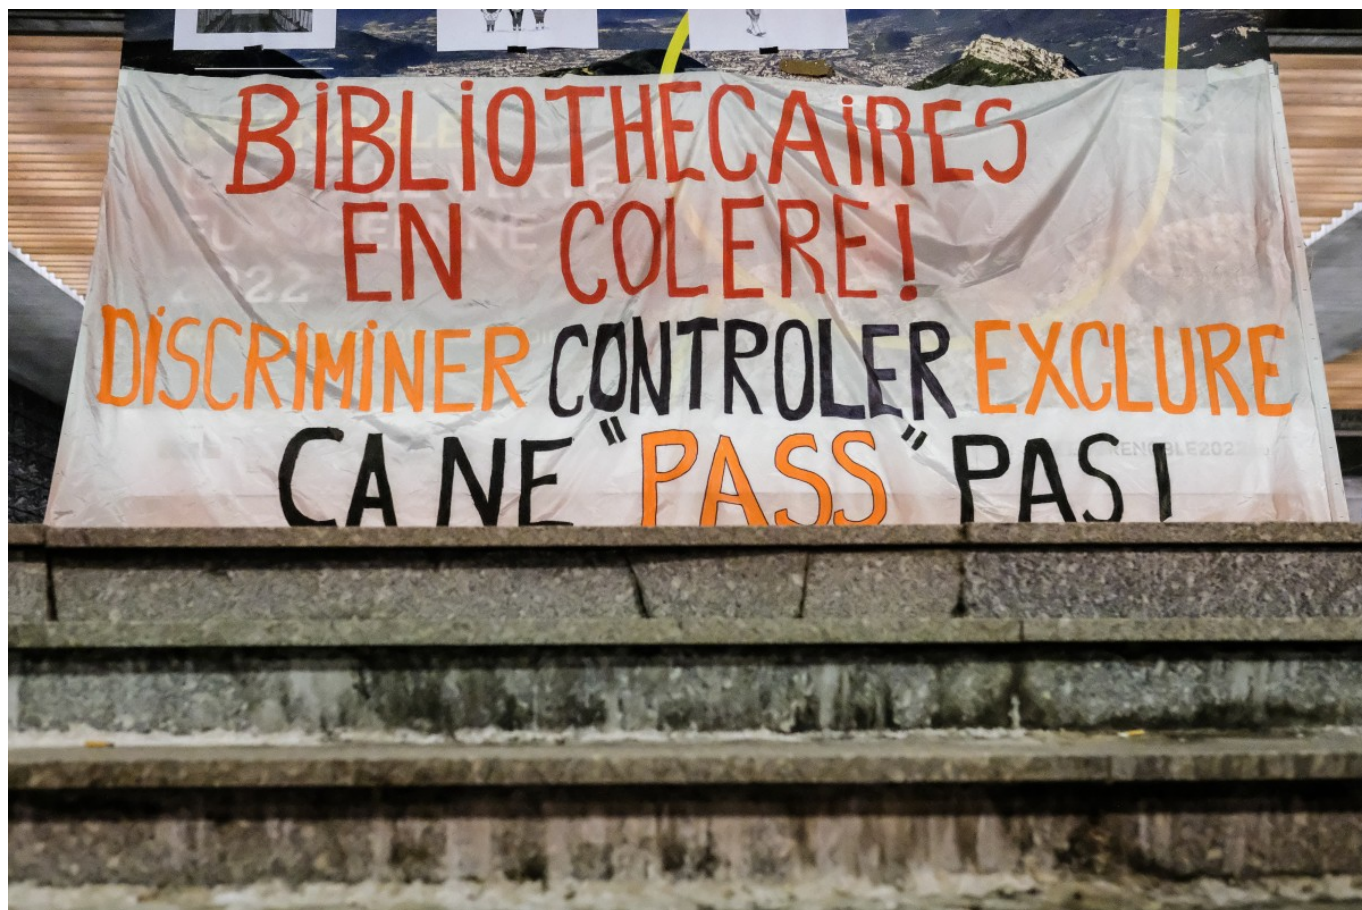 BiBLiOTHECAiRES
EN COLERE!
DiSCRiMiNER CONTROLER EXCLURE
CA NE "PASS" PAS!
2022